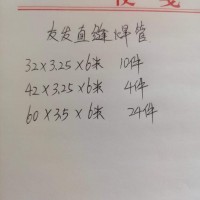 友发直缝焊管
32×3.25×6米 10件
42×3.25×6米 4件
60×3.5×6米 24件